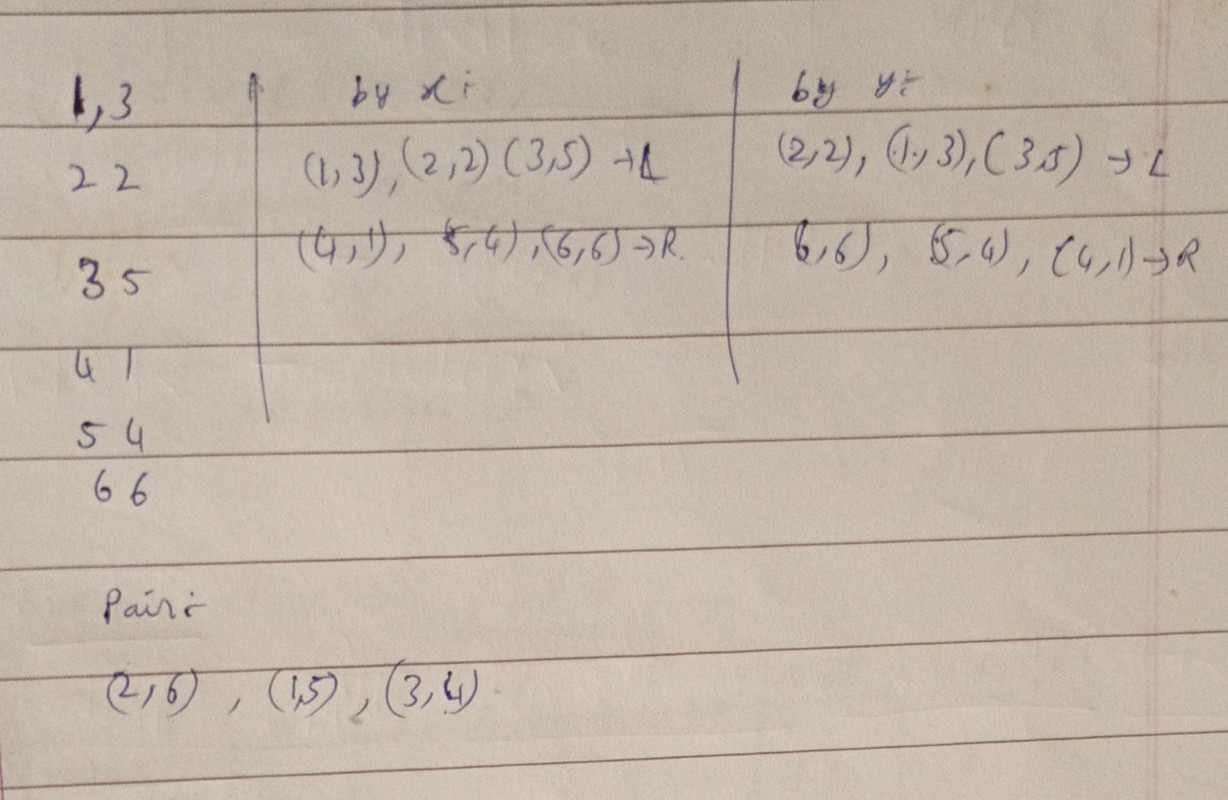 1,3
2 2
3 5
4 1
5 4
6 6
by x:
(1,3), (2,2) (3,5) → L
(4,1), 5,4), (6,6) → R.
by y:
(2,2), (1,3), (3,5) → L
6,6), (5,4), (4,1) → R
Pair:
(2,6) , (1,5) , (3,4)